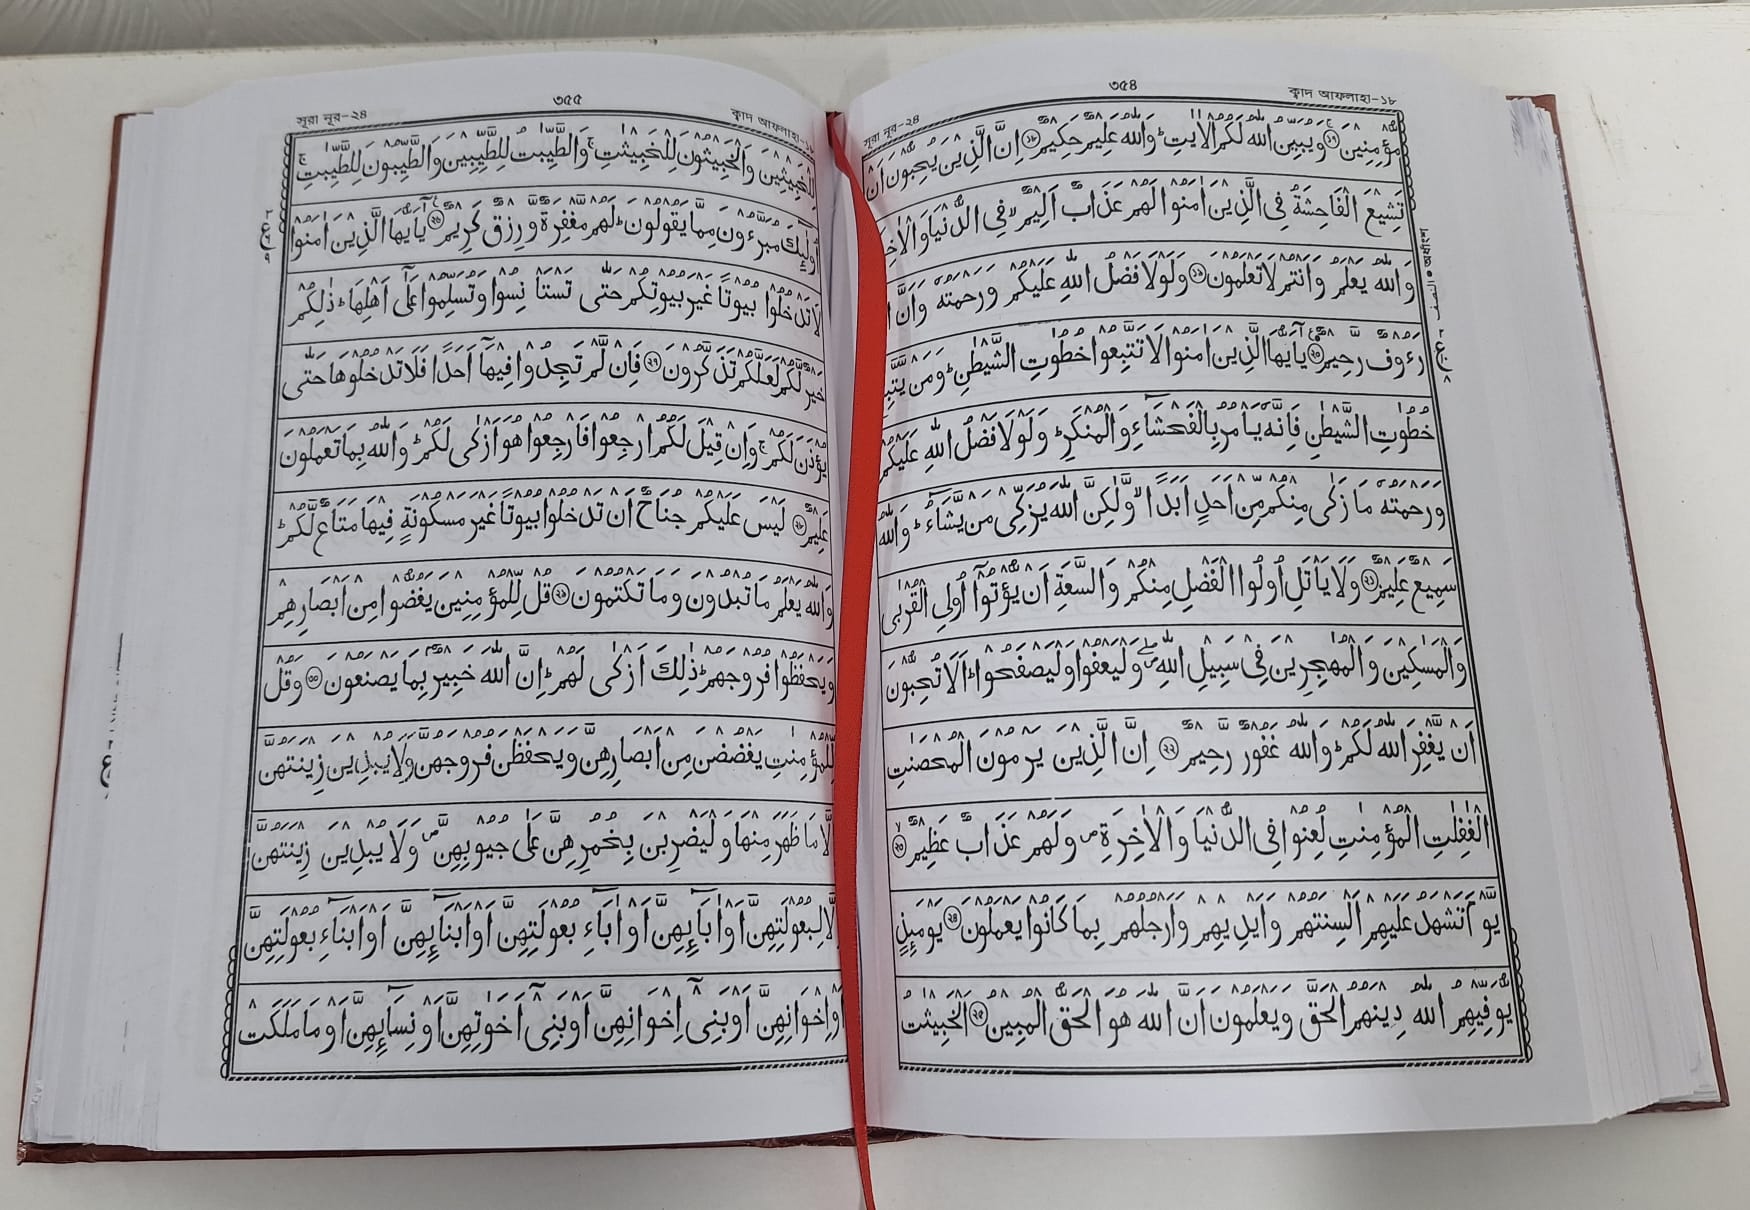 ৩৫৪
ক্বাদ আফলাহা-১৮
সূরা নূর-২৪
مُّؤْمِنِيْنَ ⑰ وَيُبَيِّنُ اللّٰهُ لَكُمُ الْاٰيٰتِ ؕ وَاللّٰهُ عَلِيْمٌ حَكِيْمٌ ⑱ اِنَّ الَّذِيْنَ يُحِبُّوْنَ اَنْ
تَشِيْعَ الْفَاحِشَةُ فِى الَّذِيْنَ اٰمَنُوْا لَهُمْ عَذَابٌ اَلِيْمٌ ۙ فِى الدُّنْيَا وَالْاٰخِرَةِ
وَاللّٰهُ يَعْلَمُ وَاَنْتُمْ لَا تَعْلَمُوْنَ ⑲ وَلَوْلَا فَضْلُ اللّٰهِ عَلَيْكُمْ وَرَحْمَتُهٗ وَاَنَّ
رَءُوْفٌ رَّحِيْمٌ ⑳ يٰۤاَيُّهَا الَّذِيْنَ اٰمَنُوْا لَا تَتَّبِعُوْا خُطُوٰتِ الشَّيْطٰنِ ؕ وَمَنْ يَّتَّبِعْ
خُطُوٰتِ الشَّيْطٰنِ فَاِنَّهٗ يَاْمُرُ بِالْفَحْشَآءِ وَالْمُنْكَرِ ؕ وَلَوْلَا فَضْلُ اللّٰهِ عَلَيْكُمْ
وَرَحْمَتُهٗ مَا زَكٰى مِنْكُمْ مِّنْ اَحَدٍ اَبَدًا ۙ وَّلٰكِنَّ اللّٰهَ يُزَكِّىْ مَنْ يَّشَآءُ ؕ وَاللّٰهُ
سَمِيْعٌ عَلِيْمٌ ㉑ وَلَا يَاْتَلِ اُولُوا الْفَضْلِ مِنْكُمْ وَالسَّعَةِ اَنْ يُّؤْتُوْۤا اُولِى الْقُرْبٰى
وَالْمَسٰكِيْنَ وَالْمُهٰجِرِيْنَ فِىْ سَبِيْلِ اللّٰهِ ۖ وَلْيَعْفُوْا وَلْيَصْفَحُوْا ؕ اَلَا تُحِبُّوْنَ
اَنْ يَّغْفِرَ اللّٰهُ لَكُمْ ؕ وَاللّٰهُ غَفُوْرٌ رَّحِيْمٌ ㉒ اِنَّ الَّذِيْنَ يَرْمُوْنَ الْمُحْصَنٰتِ
الْغٰفِلٰتِ الْمُؤْمِنٰتِ لُعِنُوْا فِى الدُّنْيَا وَالْاٰخِرَةِ ۪ وَلَهُمْ عَذَابٌ عَظِيْمٌ ㉓
يَّوْمَ تَشْهَدُ عَلَيْهِمْ اَلْسِنَتُهُمْ وَاَيْدِيْهِمْ وَاَرْجُلُهُمْ بِمَا كَانُوْا يَعْمَلُوْنَ ㉔ يَوْمَئِذٍ
يُّوَفِّيْهِمُ اللّٰهُ دِيْنَهُمُ الْحَقَّ وَيَعْلَمُوْنَ اَنَّ اللّٰهَ هُوَ الْحَقُّ الْمُبِيْنُ ㉕ اَلْخَبِيْثٰتُ
النصف ● অর্ধাংশ
৩৫৫
ক্বাদ আফলাহা-১৮
সূরা নূর-২৪
لِلْخَبِيْثِيْنَ وَالْخَبِيْثُوْنَ لِلْخَبِيْثٰتِ ۚ وَالطَّيِّبٰتُ لِلطَّيِّبِيْنَ وَالطَّيِّبُوْنَ لِلطَّيِّبٰتِ ۚ
اُولٰٓئِكَ مُبَرَّءُوْنَ مِمَّا يَقُوْلُوْنَ ؕ لَهُمْ مَّغْفِرَةٌ وَّرِزْقٌ كَرِيْمٌ ㉖ يٰۤاَيُّهَا الَّذِيْنَ اٰمَنُوْا
لَا تَدْخُلُوْا بُيُوْتًا غَيْرَ بُيُوْتِكُمْ حَتّٰى تَسْتَاْنِسُوْا وَتُسَلِّمُوْا عَلٰٓى اَهْلِهَا ؕ ذٰلِكُمْ
خَيْرٌ لَّكُمْ لَعَلَّكُمْ تَذَكَّرُوْنَ ㉗ فَاِنْ لَّمْ تَجِدُوْا فِيْهَاۤ اَحَدًا فَلَا تَدْخُلُوْهَا حَتّٰى
يُؤْذَنَ لَكُمْ ۚ وَاِنْ قِيْلَ لَكُمُ ارْجِعُوْا فَارْجِعُوْا هُوَ اَزْكٰى لَكُمْ ؕ وَاللّٰهُ بِمَا تَعْمَلُوْنَ
عَلِيْمٌ ㉘ لَيْسَ عَلَيْكُمْ جُنَاحٌ اَنْ تَدْخُلُوْا بُيُوْتًا غَيْرَ مَسْكُوْنَةٍ فِيْهَا مَتَاعٌ لَّكُمْ ؕ
وَاللّٰهُ يَعْلَمُ مَا تُبْدُوْنَ وَمَا تَكْتُمُوْنَ ㉙ قُلْ لِّلْمُؤْمِنِيْنَ يَغُضُّوْا مِنْ اَبْصَارِهِمْ
وَيَحْفَظُوْا فُرُوْجَهُمْ ؕ ذٰلِكَ اَزْكٰى لَهُمْ ؕ اِنَّ اللّٰهَ خَبِيْرٌۢ بِمَا يَصْنَعُوْنَ ㉚ وَقُلْ
لِّلْمُؤْمِنٰتِ يَغْضُضْنَ مِنْ اَبْصَارِهِنَّ وَيَحْفَظْنَ فُرُوْجَهُنَّ وَلَا يُبْدِيْنَ زِيْنَتَهُنَّ
اِلَّا مَا ظَهَرَ مِنْهَا وَلْيَضْرِبْنَ بِخُمُرِهِنَّ عَلٰى جُيُوْبِهِنَّ ۪ وَلَا يُبْدِيْنَ زِيْنَتَهُنَّ
اِلَّا لِبُعُوْلَتِهِنَّ اَوْ اٰبَآئِهِنَّ اَوْ اٰبَآءِ بُعُوْلَتِهِنَّ اَوْ اَبْنَآئِهِنَّ اَوْ اَبْنَآءِ بُعُوْلَتِهِنَّ
اَوْ اِخْوَانِهِنَّ اَوْ بَنِىْۤ اِخْوَانِهِنَّ اَوْ بَنِىْۤ اَخَوٰتِهِنَّ اَوْ نِسَآئِهِنَّ اَوْ مَا مَلَكَتْ